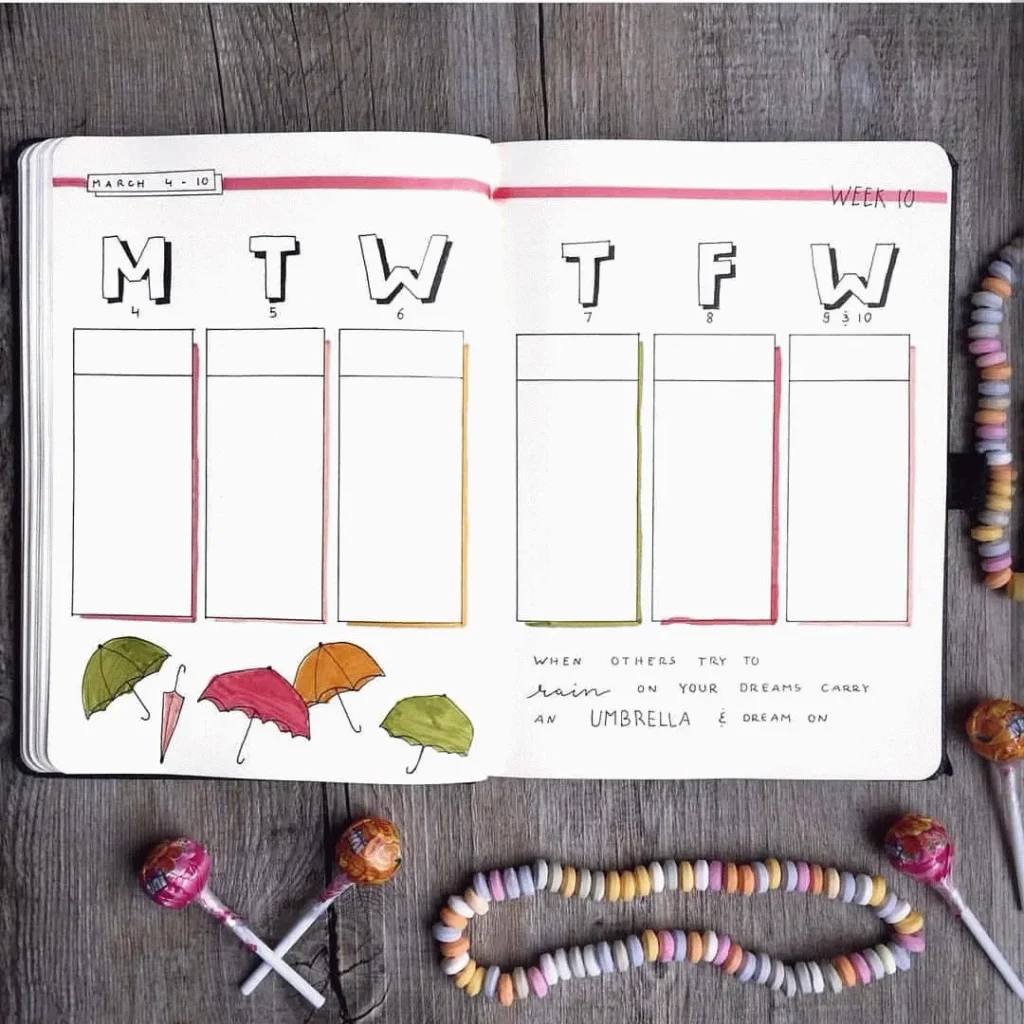 MARCH 4 - 10
WEEK 10
M T W T F W
4 5 6 7 8 9 & 10
WHEN OTHERS TRY TO
rain ON YOUR DREAMS CARRY
AN UMBRELLA & DREAM ON